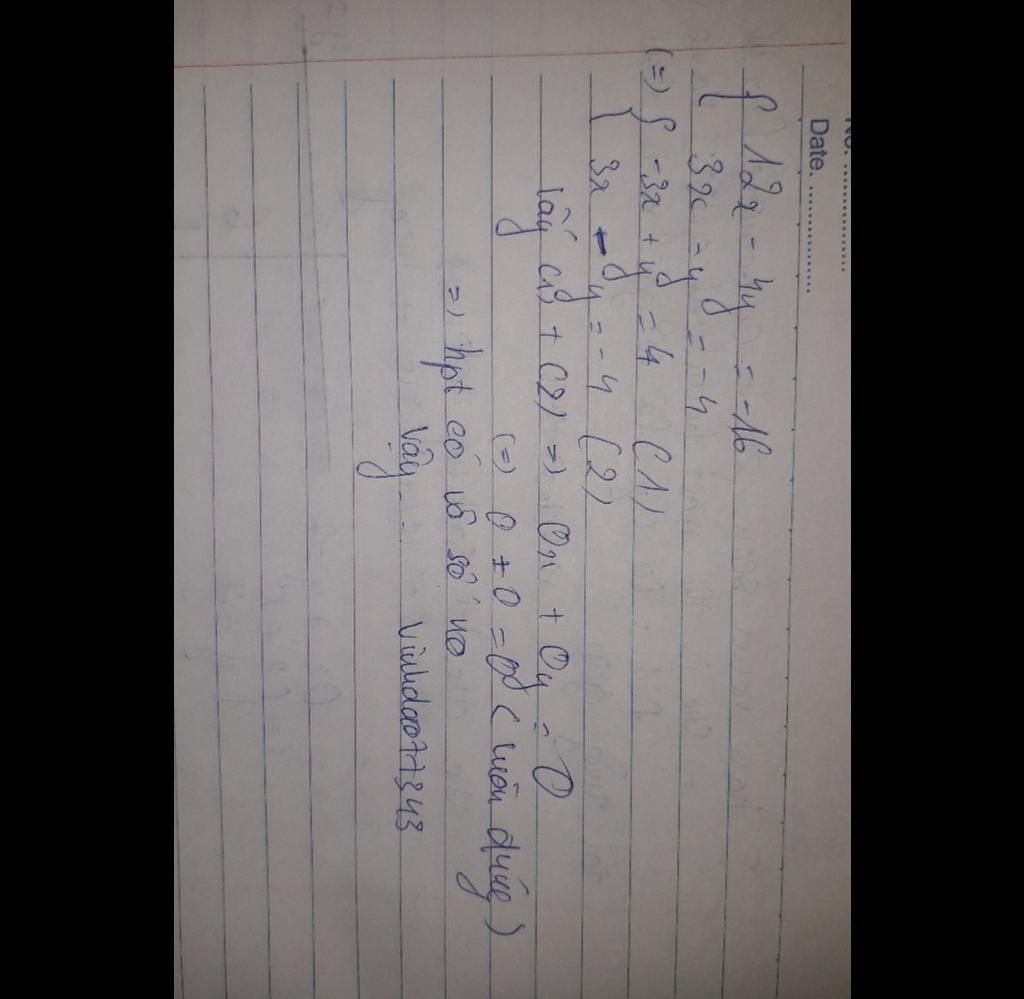 No. ................
Date. ................
{ 12x - 4y = -16
{ 3x - y = -4
(=) { -3x + y = 4 (1)
{ 3x - y = -4 (2)
lấy (1) + (2) =) 0x + 0y = 0
(=) 0 + 0 = 0 (luôn đúng)
=) hpt có vô số no
Vậy... Vinhdao77343